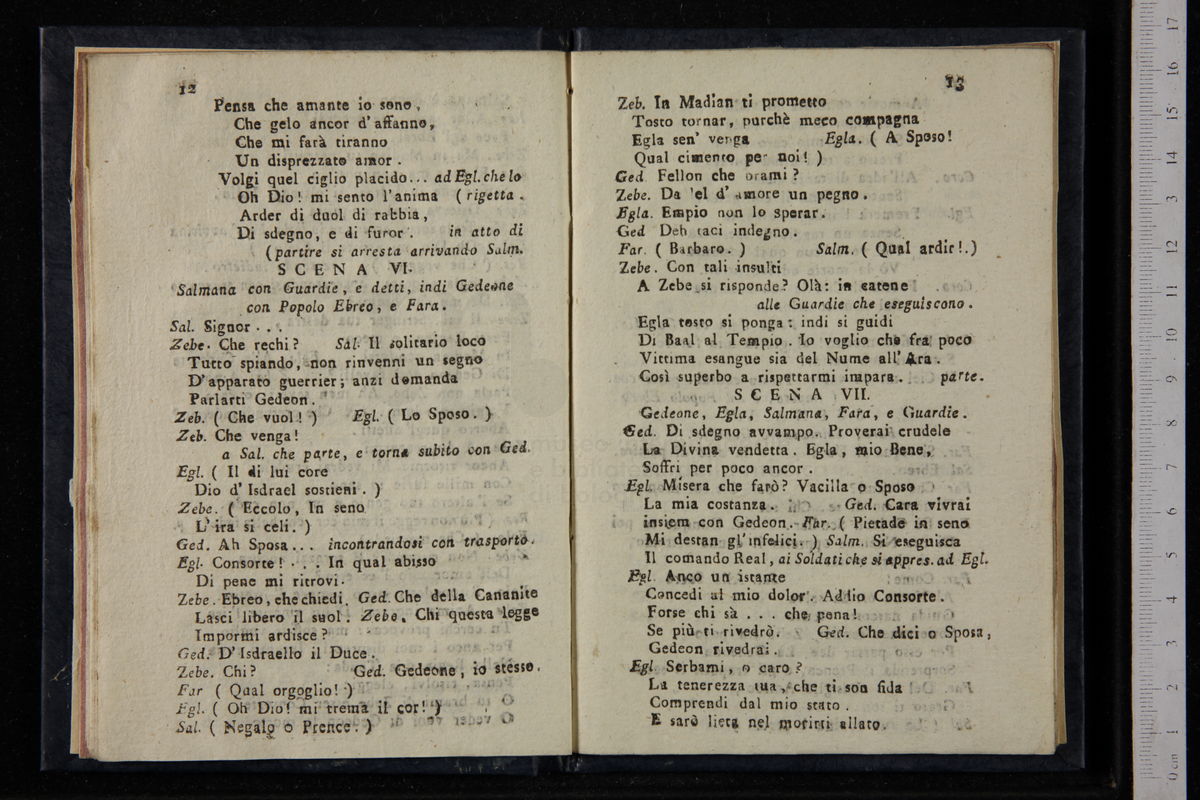 12
Pensa che amante io sono,
Che gelo ancor d'affanno,
Che mi farà tiranno
Un disprezzato amor.
Volgi quel ciglio placido... ad Egl. che lo
Oh Dio! mi sento l'anima (rigetta.
Arder di duol di rabbia,
Di sdegno, e di furor. in atto di
(partire si arresta arrivando Salm.
SCENA VI.
Salmana con Guardie, e detti, indi Gedeone
con Popolo Ebreo, e Fara.
Sal. Signor...
Zebe. Che rechi? Sal. Il solitario loco
Tutto spiando, non rinvenni un segno
D'apparato guerrier; anzi domanda
Parlarti Gedeon.
Zeb. (Che vuol!) Egl. (Lo Sposo.)
Zeb. Che venga!
a Sal. che parte, e torna subito con Ged.
Egl. (Il di lui core
Dio d'Isdrael sostieni.)
Zebe. (Eccolo, In seno
L'ira si celi.)
Ged. Ah Sposa... incontrandosi con trasporto.
Egl. Consorte!... In qual abisso
Di pene mi ritrovi.
Zebe. Ebreo, che chiedi. Ged. Che della Cananite
Lasci libero il suol. Zebe. Chi questa legge
Impormi ardisce?
Ged. D'Isdraello il Duce.
Zebe. Chi? Ged. Gedeone, io stesso.
Far (Qual orgoglio!)
Egl. (Oh Dio! mi trema il cor!)
Sal. (Negalo o Prence.)
13
Zeb. In Madian ti prometto
Tosto tornar, purchè meco compagna
Egla sen' venga Egla. (A Sposo!
Qual cimento per noi!)
Ged. Fellon che orami?
Zebe. Da 'el d'amore un pegno.
Egla. Empio non lo sperar.
Ged Deh taci indegno.
Far. (Barbaro.) Salm. (Qual ardir!.)
Zebe. Con tali insulti
A Zebe si risponde? Olà: in catene
alle Guardie che eseguiscono.
Egla tosto si ponga: indi si guidi
Di Baal al Tempio. Io voglio che fra poco
Vittima esangue sia del Nume all'Ara.
Così superbo a rispettarmi impara. parte.
SCENA VII.
Gedeone, Egla, Salmana, Fara, e Guardie.
Ged. Di sdegno avvampo. Proverai crudele
La Divina vendetta. Egla, mio Bene,
Soffri per poco ancor.
Egl. Misera che farò? Vacilla o Sposo
La mia costanza. Ged. Cara vivrai
insiem con Gedeon. Far. (Pietade in seno
Mi destan gl'infelici.) Salm. Si eseguisca
Il comando Real, ai Soldati che si appres. ad Egl.
Egl. Anco un istante
Concedi al mio dolor. Addio Consorte.
Forse chi sà... che pena!
Se più ti rivedrò. Ged. Che dici o Sposa,
Gedeon rivedrai.
Egl Serbami, o caro?
La tenerezza tua, che ti son fida
Comprendi dal mio stato.
E sarò lieta nel morirti allato.